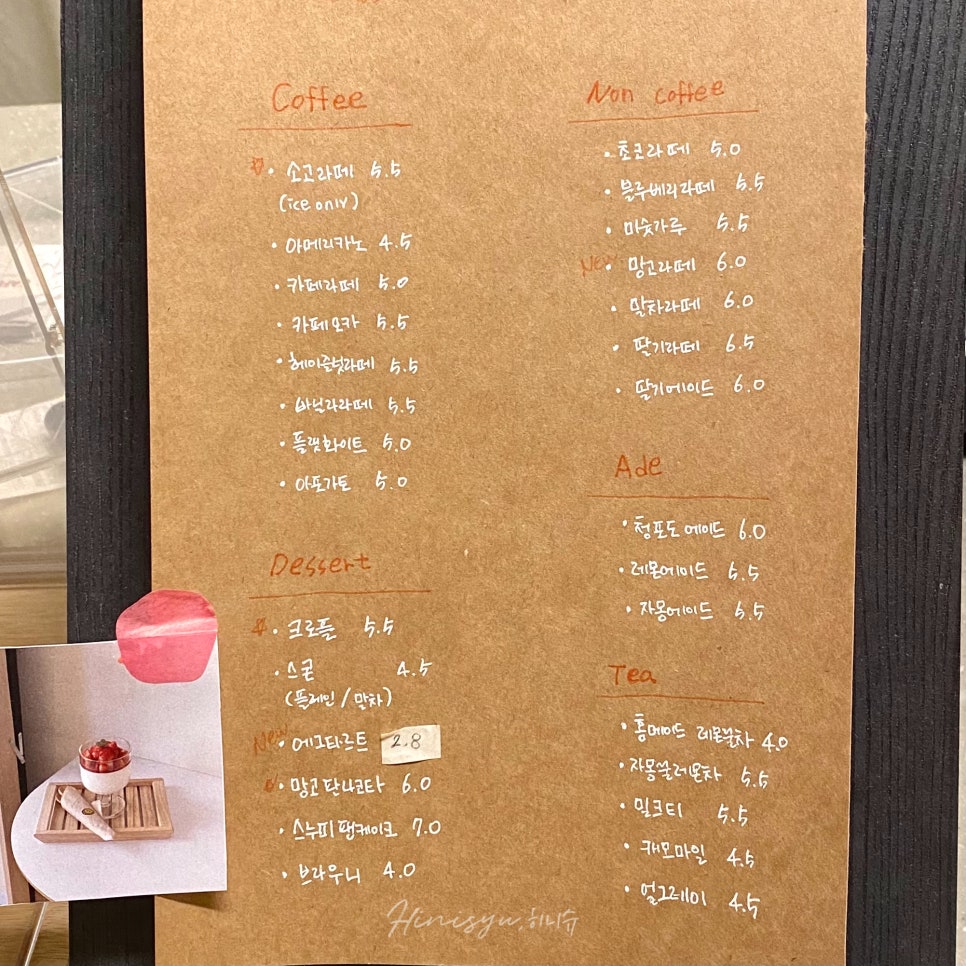 Coffee
소고라떼 5.5
(ice only)
아메리카노 4.5
카페라떼 5.0
카페모카 5.5
헤이즐넛라떼 5.5
바닐라라떼 5.5
플랫화이트 5.0
아포가토 5.0
Dessert
크로플 5.5
스콘 4.5
(플레인/말차)
New 에그타르트 2.8
망고판나코타 6.0
스누피팬케이크 7.0
브라우니 4.0
Non coffee
초코라떼 5.0
블루베리라떼 5.5
미숫가루 5.5
New 망고라떼 6.0
말차라떼 6.0
딸기라떼 6.5
딸기에이드 6.0
Ade
청포도에이드 6.0
레몬에이드 5.5
자몽에이드 5.5
Tea
홈메이드 레몬꿀차 4.0
자몽꿀레몬차 5.5
밀크티 5.5
캐모마일 4.5
얼그레이 4.5
Hinisyu.히니슈